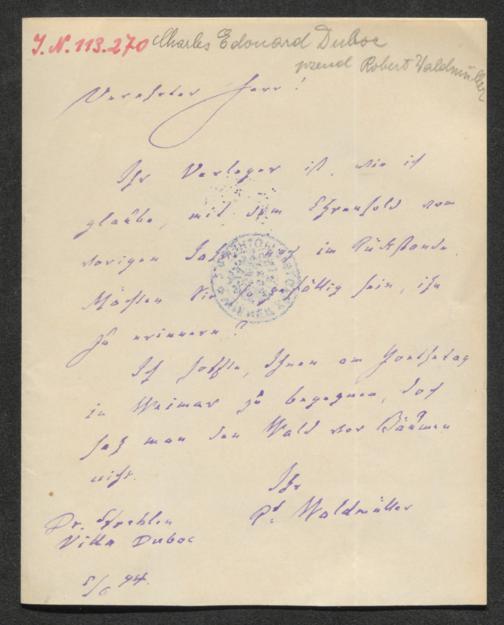 J. N. 113.270 Charles Edouard Duboc
pseud Robert Waldmüller
Verehrter Herr!
Ihr Verleger ist, wie ich
glaube, mit dem Ehrensold vom
vorigen noch im Rückstande.
Möchten Sie so gefällig sein, ihn
zu erinnern?
Ich hoffte, Ihnen am Goethetag
in Weimar zu begegnen, doch
sah man den Wald vor Bäumen
nicht.
Ihr
Rt Waldmüller
Dr. Strehlen
Villa Duboc
5/6 94.